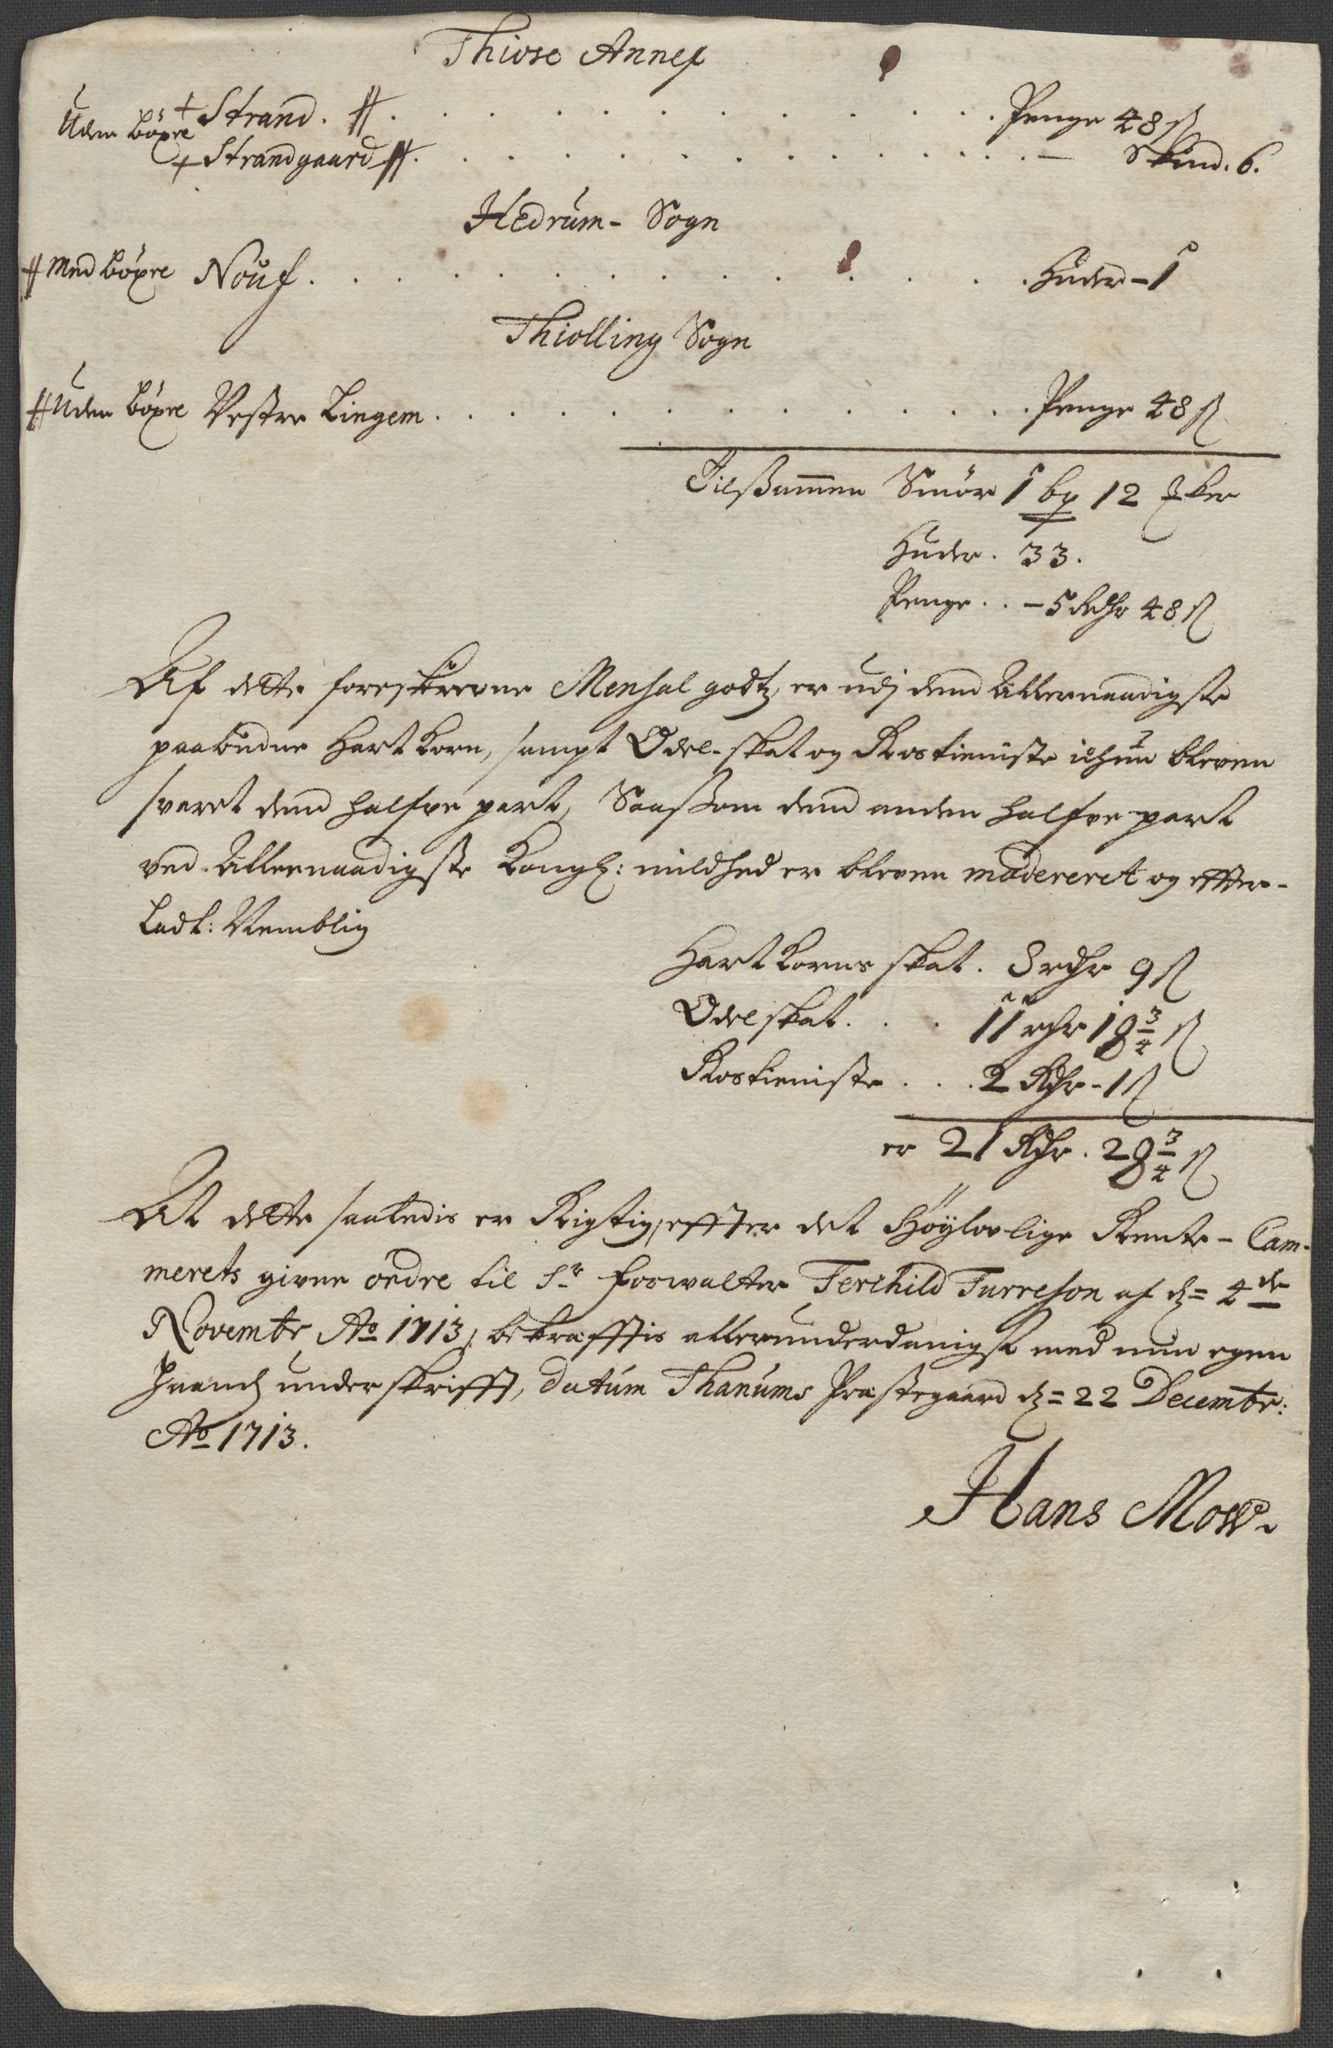 Thiose Annex
Uden böxre + Strand. # . . . . . . Penge 48 ß
+ Strandgaard # . . . . . . – Skind. 6.
Hedrum- Sogn
# Med böxre Nouf . . . . . . Huder – 1
Thiolling Sogn
# Uden böxre Vestre Lingem . . . . . . Penge 48 ß
Tilsammen Smör 1 bp 12
Huder . 33.
Penge . . – 5 Rdr 48 ß
Af dette foreskrevne Mensal godtz er udj dend Allernaadigste
paabudne Hartkorn, sampt Odel-skat og Rostieniste ichun bleven
svaret dend halfve part, Saasom dend anden halfve part
ved Allernaadigste Kongl: mildhed er bleven modereret og effter-
ladt: Nemblig
Hartkorns skat . 8 rdr 9 ß
Odelskat . . . 11 rdr 18 3/4 ß
Rostieniste . . . 2 Rdr - 1 ß
er 21 Rdr . 28 3/4 ß
At dette saaledis er Rigtig, effter det Höylovlige Rente- Cam-
merets givne ordre til Sr Forvalter Terchild Turreson af d= 4de
Novembr Ao 1713, bekræfftis allerunderdanigst med min egen
Haand underskrifft, datum Thanums Præstegaard d= 22 Decembr:
Ao 1713.
Hans Mow.